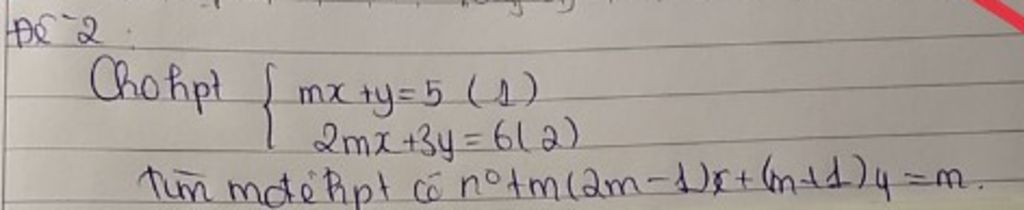 Đề 2:
Cho hpt { mx + y = 5 (1)
2mx + 3y = 6 (2)
tìm m để hpt có n° tm (2m - 1)x + (m + 1)y = m.